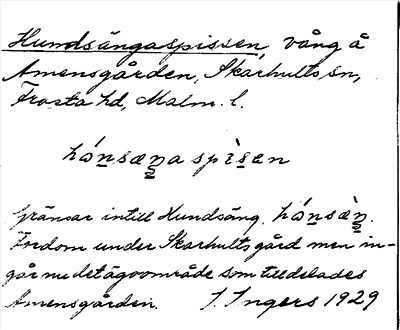 Hundsängaspissen, vång å
Amensgården, Skarhults sn,
Frosta hd, Malm. l.
hónsæŋa spìsen
Gränsar intill Hundsäng. hónsæ̀ŋ.
Fordom under Skarhults gård men in-
går nu det ägoområde som tilldelades
Amensgården. I. Ingers 1929